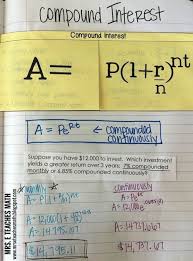 Compound Interest
Compound Interest
A= P(1+r/n)^nt
A = Pe^rt ← compounded continuously
Suppose you have $12,000 to invest. Which investment
yields a greater return over 3 years: 7% compounded
monthly or 6.85% compounded continuously?
monthly
continuously
A = P(1+
A = Pe
A = 12,000(1+
A = 12,000e
A = 14795.11
A = 14737.667
$14,795.11
$14,737.67
MRS. E TEACHES MATH